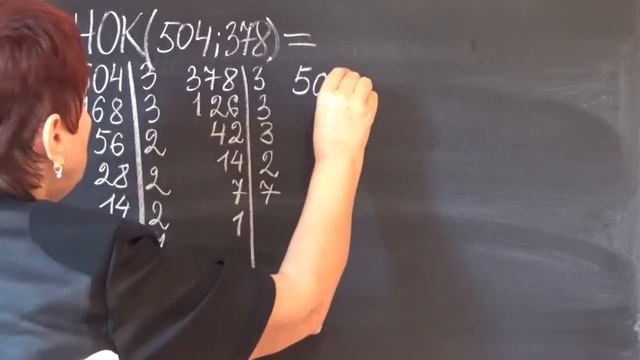 НОК(504;378)=
504|3 378|3 50
168|3 126|3
56|2 42|3
28|2 14|2
14|2 7|7
1|